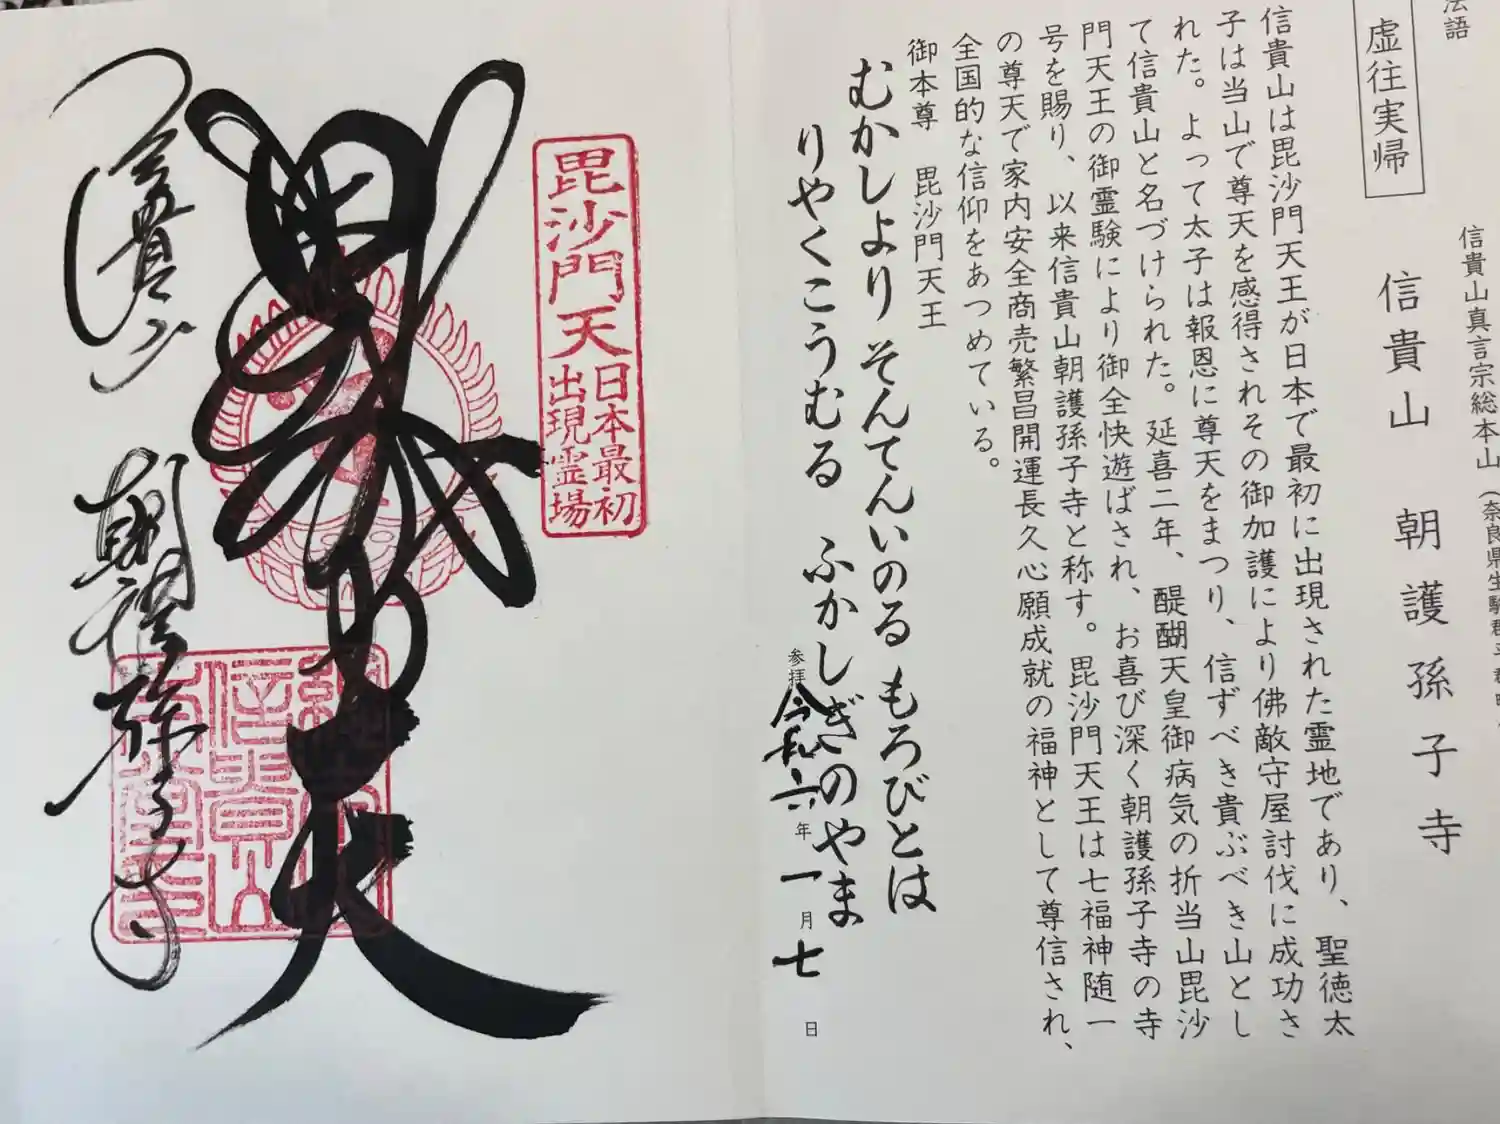 法語
虚往実帰
信貴山真言宗総本山（奈良県生駒郡平群町
信貴山 朝護孫子寺
信貴山は毘沙門天王が日本で最初に出現された霊地であり、聖徳太
子は当山で尊天を感得されその御加護により佛敵守屋討伐に成功さ
れた。よって太子は報恩に尊天をまつり、信ずべき貴ぶべき山とし
て信貴山と名づけられた。延喜二年、醍醐天皇御病気の折当山毘沙
門天王の御霊験により御全快遊ばされ、お喜び深く朝護孫子寺の寺
号を賜り、以来信貴山朝護孫子寺と称す。毘沙門天王は七福神随一
の尊天で家内安全商売繁昌開運長久心願成就の福神として尊信され、
全国的な信仰をあつめている。
御本尊 毘沙門天王
むかしより そんてんいのる もろびとは
りやくこうむる ふかしぎのやま
参拝 令和六年一月七日
毘沙門天
日本最初
出現霊場
信貴山
朝護孫子寺